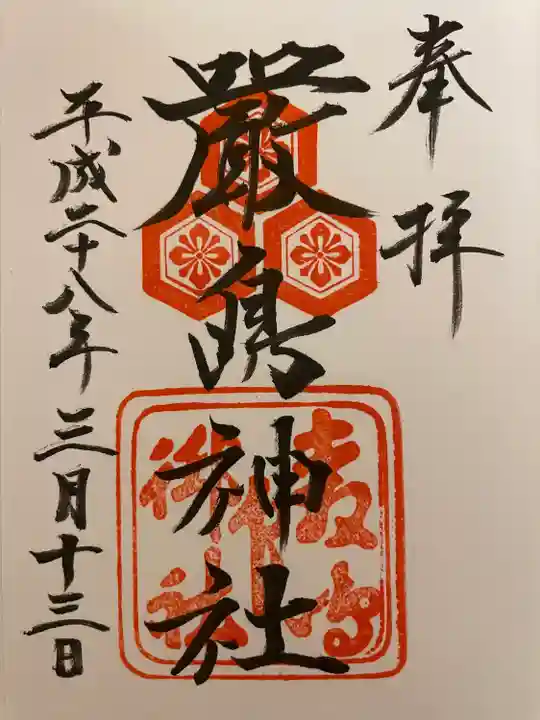 奉拝
厳島神社
平成二十八年三月十三日